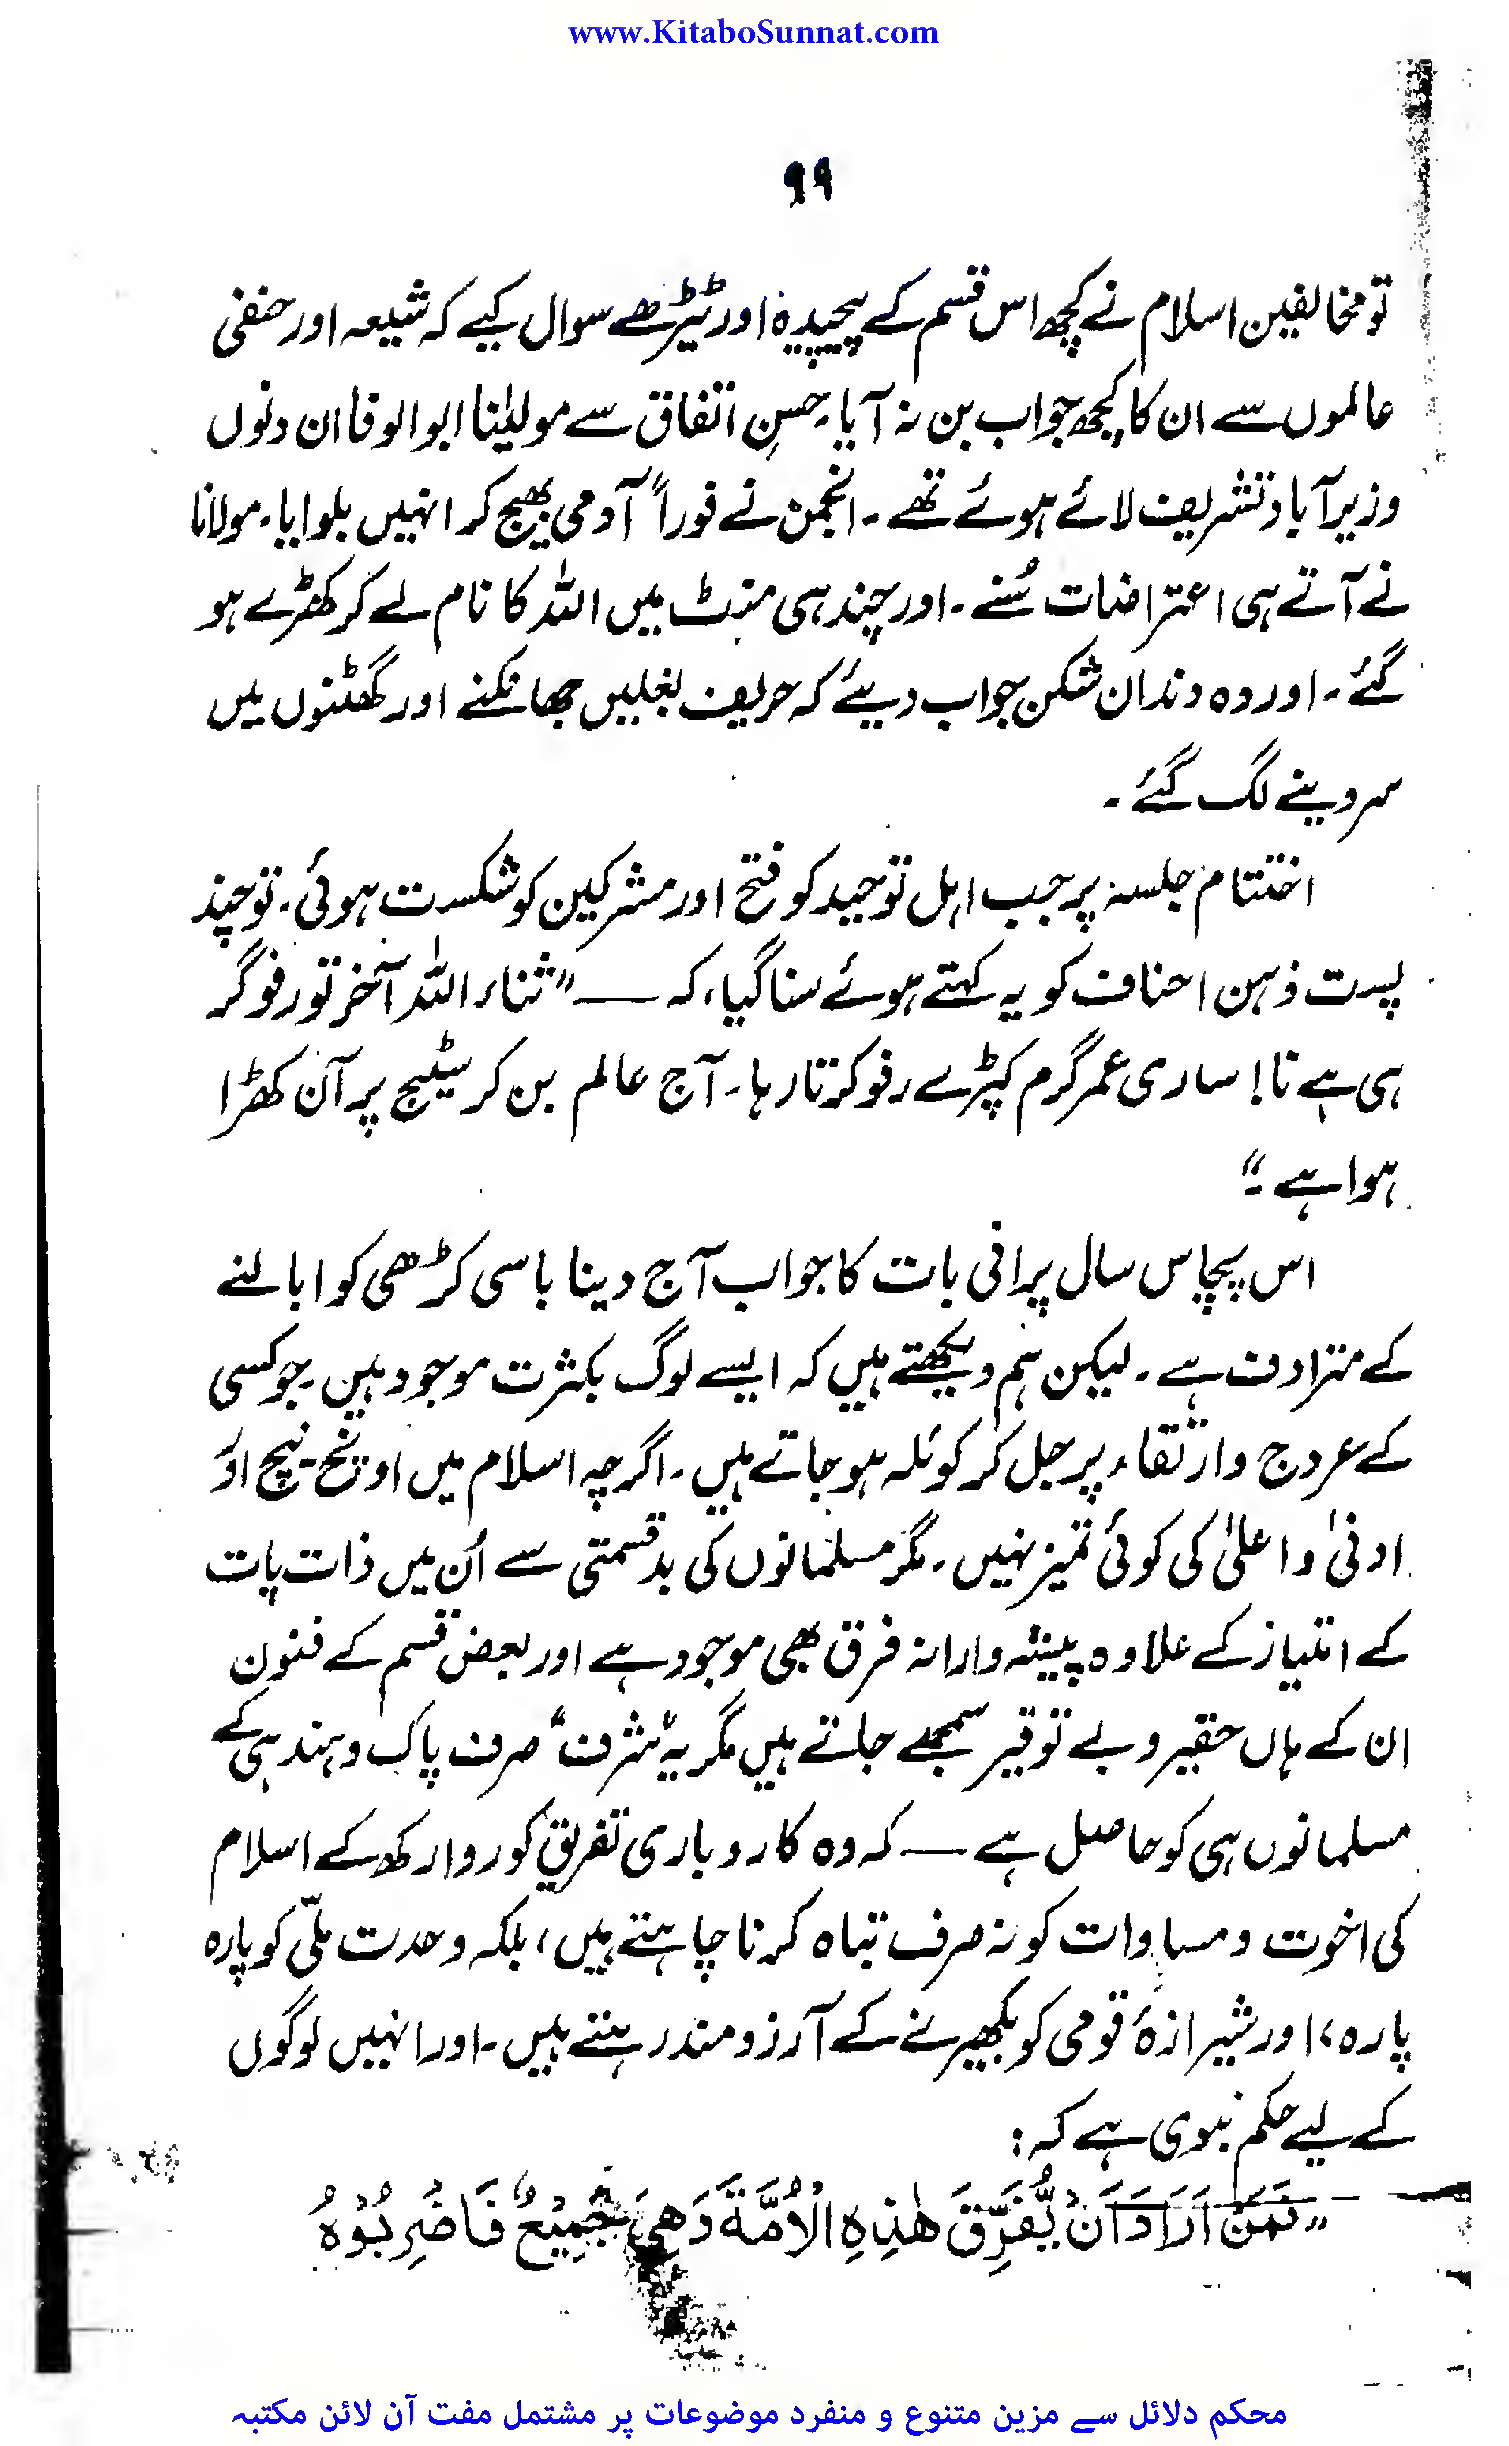 www.KitaboSunnat.com
۹۹
تو مخالفین اسلام نے کچھ اس قسم کے پیچیدہ اور ٹیڑھے سوال کیے کہ شیعہ اور حنفی
عالموں سے ان کا کچھ جواب بن نہ آیا۔ حسنِ اتفاق سے مولیٰنا ابوالوفا ان دنوں
وزیر آباد تشریف لائے ہوئے تھے ۔ انجمن نے فوراً آدمی بھیج کر انہیں بلوایا۔ مولانا
نے آتے ہی اعتراضات سُنے ۔ اور چند ہی منٹ میں اللہ کا نام لے کر کھڑے ہو
گئے ۔ اور وہ دندان شکن جواب دیئے کہ حریف بغلیں جھانکنے اور گھٹنوں میں
سر دینے لگ گئے ۔
اختتام جلسہ پر جب اہل توحید کو فتح اور مشرکین کو شکست ہوئی۔ تو چند
پست ذہن احناف کو یہ کہتے ہوئے سنا گیا، کہ — "ثناء اللہ آخر تو رفوگر
ہی ہے نا! ساری عمر گرم کپڑے رفو کرتا رہا۔ آج عالم بن کر سٹیج پر آن کھڑا
ہوا ہے ۔"
اس پچاس سال پرانی بات کا جواب آج دینا باسی کڑھی کو ابالنے
کے مترادف ہے ۔ لیکن ہم دیکھتے ہیں کہ ایسے لوگ بکثرت موجود ہیں ۔ جو کسی
کے عروج وارتقاء پر جل کر کوئلہ ہو جاتے ہیں ۔ اگرچہ اسلام میں اونچ ۔ نیچ اوَر
ادنیٰ و اعلیٰ کی کوئی تمیز نہیں ۔ مگر مسلمانوں کی بدقسمتی سے اُن میں ذات پات
کے امتیاز کے علاوہ پیشہ وارانہ فرق بھی موجود ہے اور بعض قسم کے فنون
ان کے ہاں حقیر و بے توقیر سمجھے جاتے ہیں مگر یہ "شرف" صرف پاک و ہند ہی کے
مسلمانوں ہی کو حاصل ہے — کہ وہ کاروباری تفریق کو روا رکھ کے اسلام
کی اخوت و مساوات کو نہ صرف تباہ کرنا چاہتے ہیں، بلکہ وحدت ملّی کو پارہ
پارہ، اور شیرازۂ قومی کو بکھیرنے کے آرزو مند رہتے ہیں ۔ اور انہیں لوگوں
کے لیے حکم نبوی ہے کہ :
"فَمَنْ اَرَادَ اَنْ يُّفَرِّقَ هٰذِهِ الْاُمَّةَ وَهِيَ جَمِيْعٌ فَاضْرِبُوْهُ
محکم دلائل سے مزین متنوع و منفرد موضوعات پر مشتمل مفت آن لائن مکتبہ